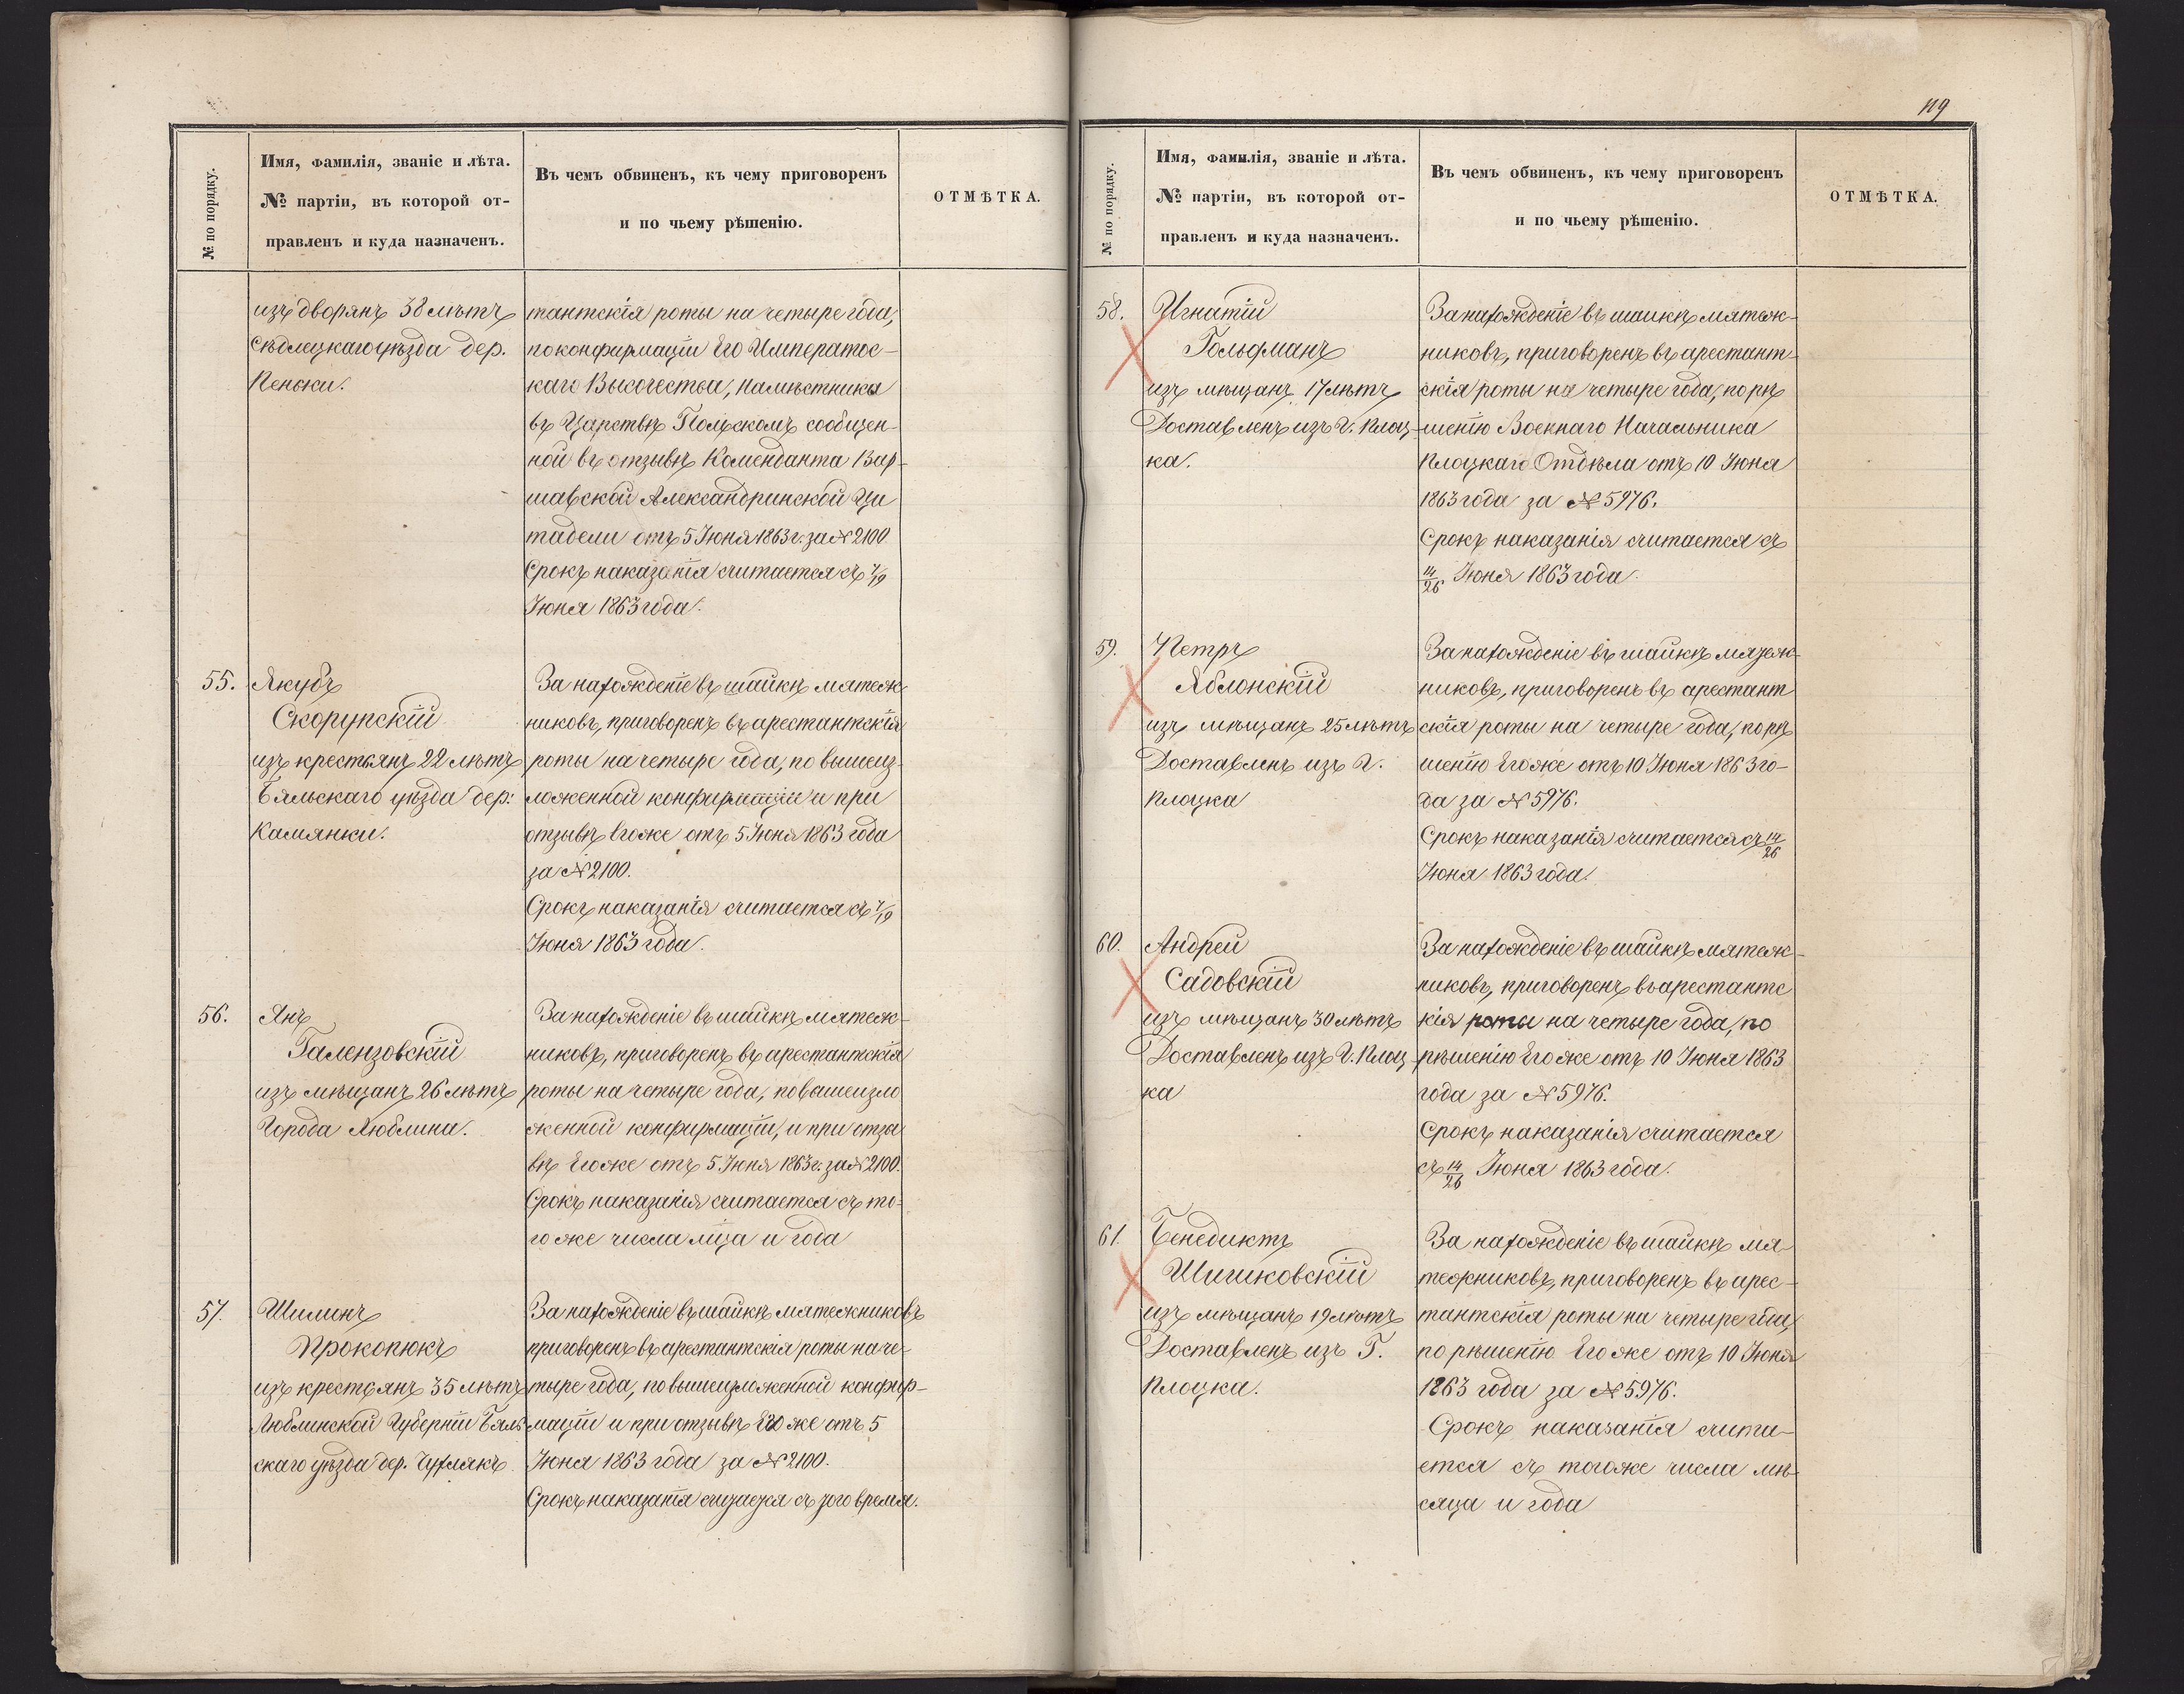 № по порядку.
Имя, фамилія, званіе и лѣта.
№ партіи, въ которой от-
правленъ и куда назначенъ.
Въ чемъ обвиненъ, къ чему приговоренъ
и по чьему рѣшенію.
ОТМѢТКА.
изъ дворянъ 38 лѣтъ
Сѣдлецкаго уѣзда дер.
Пеньки.
тантскія роты на четыре года,
по конфирмаціи Его Императос-
каго Высочества, Намѣстника
въ Царствѣ Польскомъ сообщен-
ной въ отзывѣ Коменданта Вар-
шавской Александринской Ци
тадели отъ 5 Іюня 1863 г. за № 2100
Срокъ наказанія считается съ 7/19
Іюня 1863 года.
55.
Якубъ
Скорупскій
изъ крестьянъ 22 лѣтъ
Бяльскаго уѣзда дер:
Камянки.
За нахожденіе въ шайкѣ мятеж
никовъ, приговоренъ въ арестантскія
роты на четыре года, по вышеиз-
ложенной конфирмаціи и при
отзывѣ Его же отъ 5 Іюня 1863 года
за № 2100.
Срокъ наказанія считается съ 7/19
Іюня 1863 года.
56.
Янъ
Галензовскій
изъ мѣщанъ 26 лѣтъ
Города Люблина.
За нахожденіе въ шайкѣ мятеж-
никовъ, приговоренъ въ арестантскія
роты на четыре года, по вышеизло
женной конфирмаціи, и при отзы
вѣ Его же отъ 5 Іюня 1863 г. за № 2100.
Срокъ наказанія считается съ то-
го же числа м-ца и года
57.
Шимонъ
Прокопюкъ
изъ крестьянъ 35 лѣтъ
Люблинской Губерніи Бяль
скаго уѣзда дер.
За нахожденіе въ шайкѣ мятежниковъ
приговоренъ въ арестантскія роты на че-
тыре года, по вышеизложенной конфир-
маціи и при отзывѣ Его же отъ 5
Іюня 1863 года за № 2100.
Срокъ наказанія считается съ того время.
119
№ по порядку.
Имя, фамилія, званіе и лѣта.
№ партіи, въ которой от-
правленъ и куда назначенъ.
Въ чемъ обвиненъ, къ чему приговоренъ
и по чьему рѣшенію.
ОТМѢТКА.
58.
Игнатій
Гольфманъ
изъ мѣщанъ 17 лѣтъ
Доставленъ изъ Г. Плоц-
ка.
За нахожденіе въ шайкѣ мятеж-
никовъ, приговоренъ въ арестант-
скія роты на четыре года, по рѣ
шенію Военнаго Начальника
Плоцкаго Отдѣла отъ 10 Іюня
1863 года за № 5976.
Срокъ наказанія считается съ
14/26 Іюня 1863 года.
59.
Петръ
Яблонскій
изъ мѣщанъ 25 лѣтъ
Доставленъ изъ Г.
Плоцка
За нахожденіе въ шайкѣ мятеж-
никовъ, приговоренъ въ арестант
скія роты на четыре года, по рѣ
шенію Его же отъ 10 Іюня 1863 го-
да за № 5976.
Срокъ наказанія считается съ 14/26
Іюня 1863 года.
60.
Андрей
Садовскій
изъ мѣщанъ 30 лѣтъ
Доставленъ изъ Г. Плоц-
ка
За нахожденіе въ шайкѣ мятеж-
никовъ, приговоренъ въ арестантс
кія роты на четыре года, по
рѣшенію Его же отъ 10 Іюня 1863
года за № 5976.
Срокъ наказанія считается
съ 14/26 Іюня 1863 года.
61.
Бенедиктъ
Шишковскій
изъ мѣщанъ 19 лѣтъ
Доставленъ изъ Г.
Плоцка.
За нахожденіе въ шайкѣ мя-
тежниковъ, приговоренъ въ арес-
тантскія роты на четыре года,
по рѣшенію Его же отъ 10 Іюня
1863 года за № 5976.
Срокъ наказанія счита-
ется съ того же числа мѣ-
сяца и года